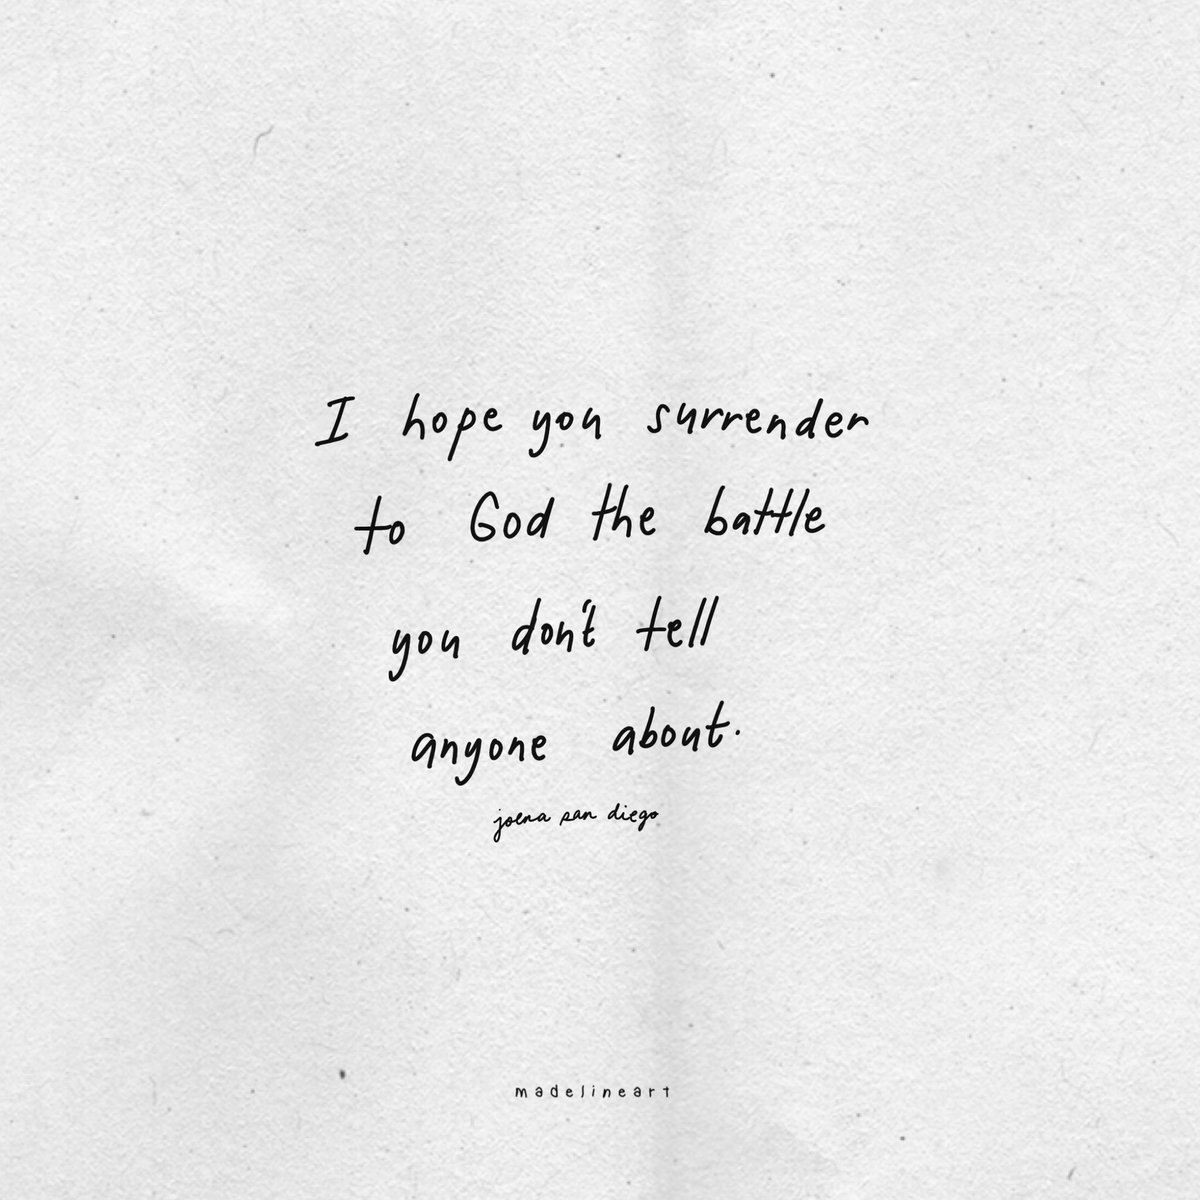 I hope you surrender
to God the battle
you don't tell
anyone about.
joena san diego
madelineart